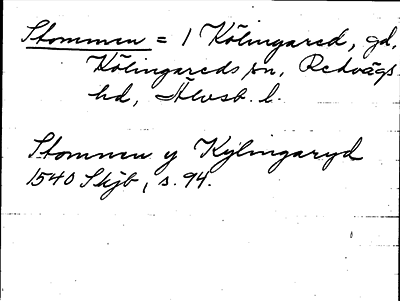 Stommen = 1 Kölingared, gd,
Kölingareds sn, Redvägs
hd, Älvsb. l.
Stommen y Kylingaryd
1540 Skjb, s. 94.